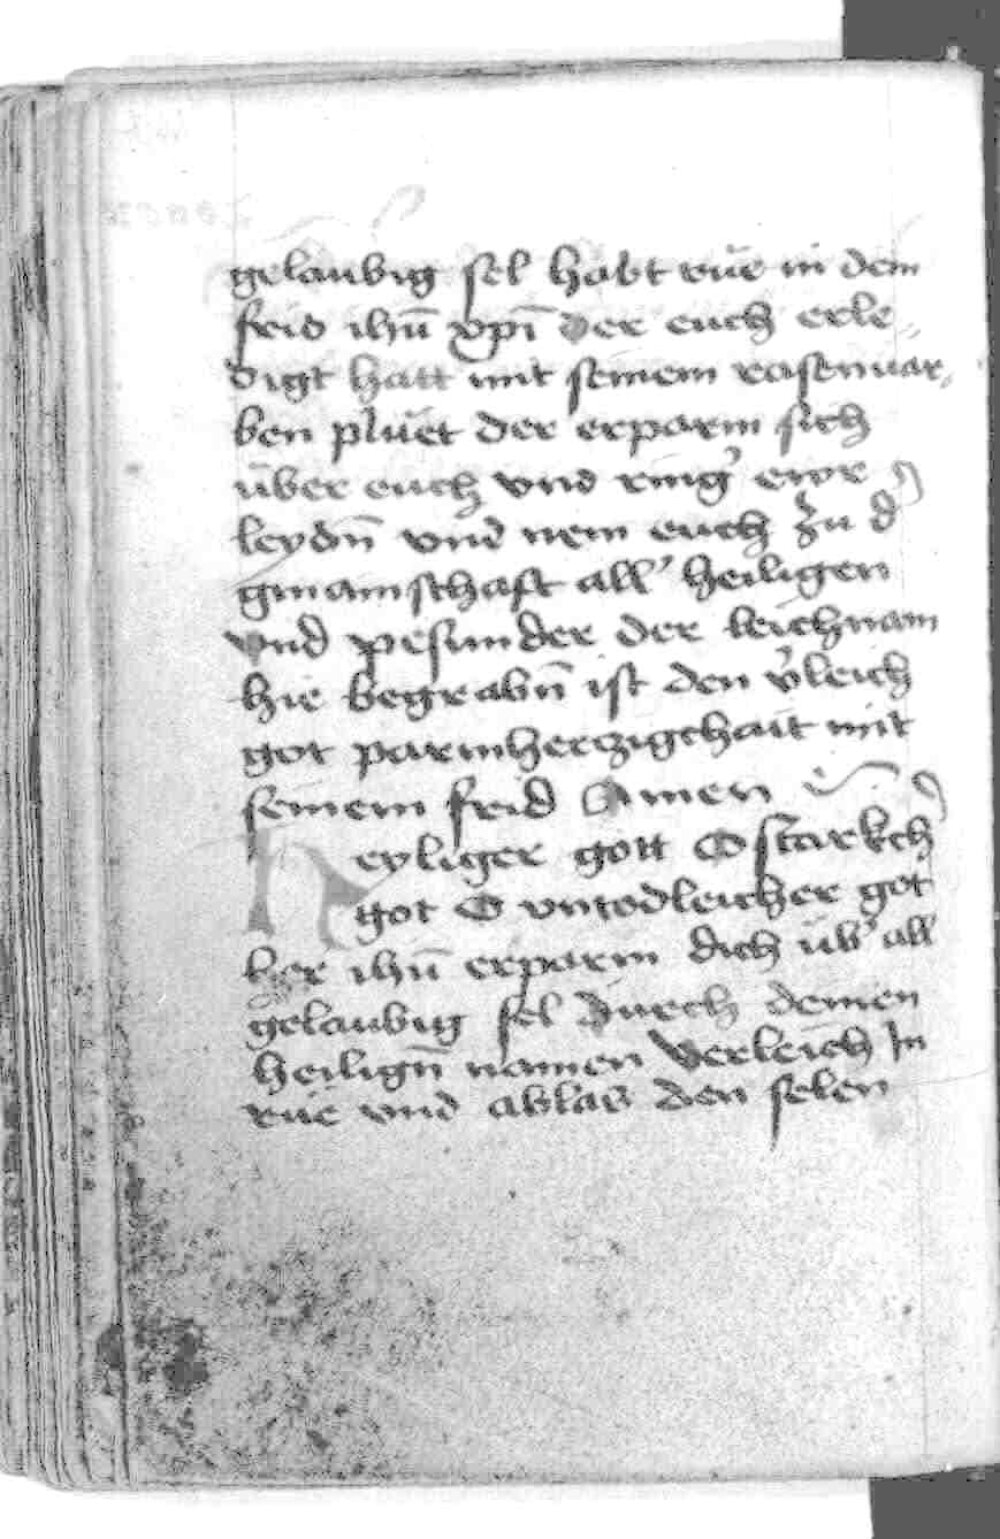 gelaubig sel habt rue in dem
frid ihū xpī der euch erle„
digt hatt mit seinem rosenuar„
ben pluet der erparm sich
über euch vnd ring' ewr
leydn̄ vnd nem euch zu d'
gmainschaft all' heiligen
vnd pesunder der leichnam
hie begrabn̄ ist den v'leich
got parmherczigchait mit
seinem frid Amen
Heyliger gott O starkch'
got O vntodleicher got
her ihū erparm dich üb' all
gelaubig sel durch deinen
heilign̄ namen verleich In
rue vnd ablas den selen